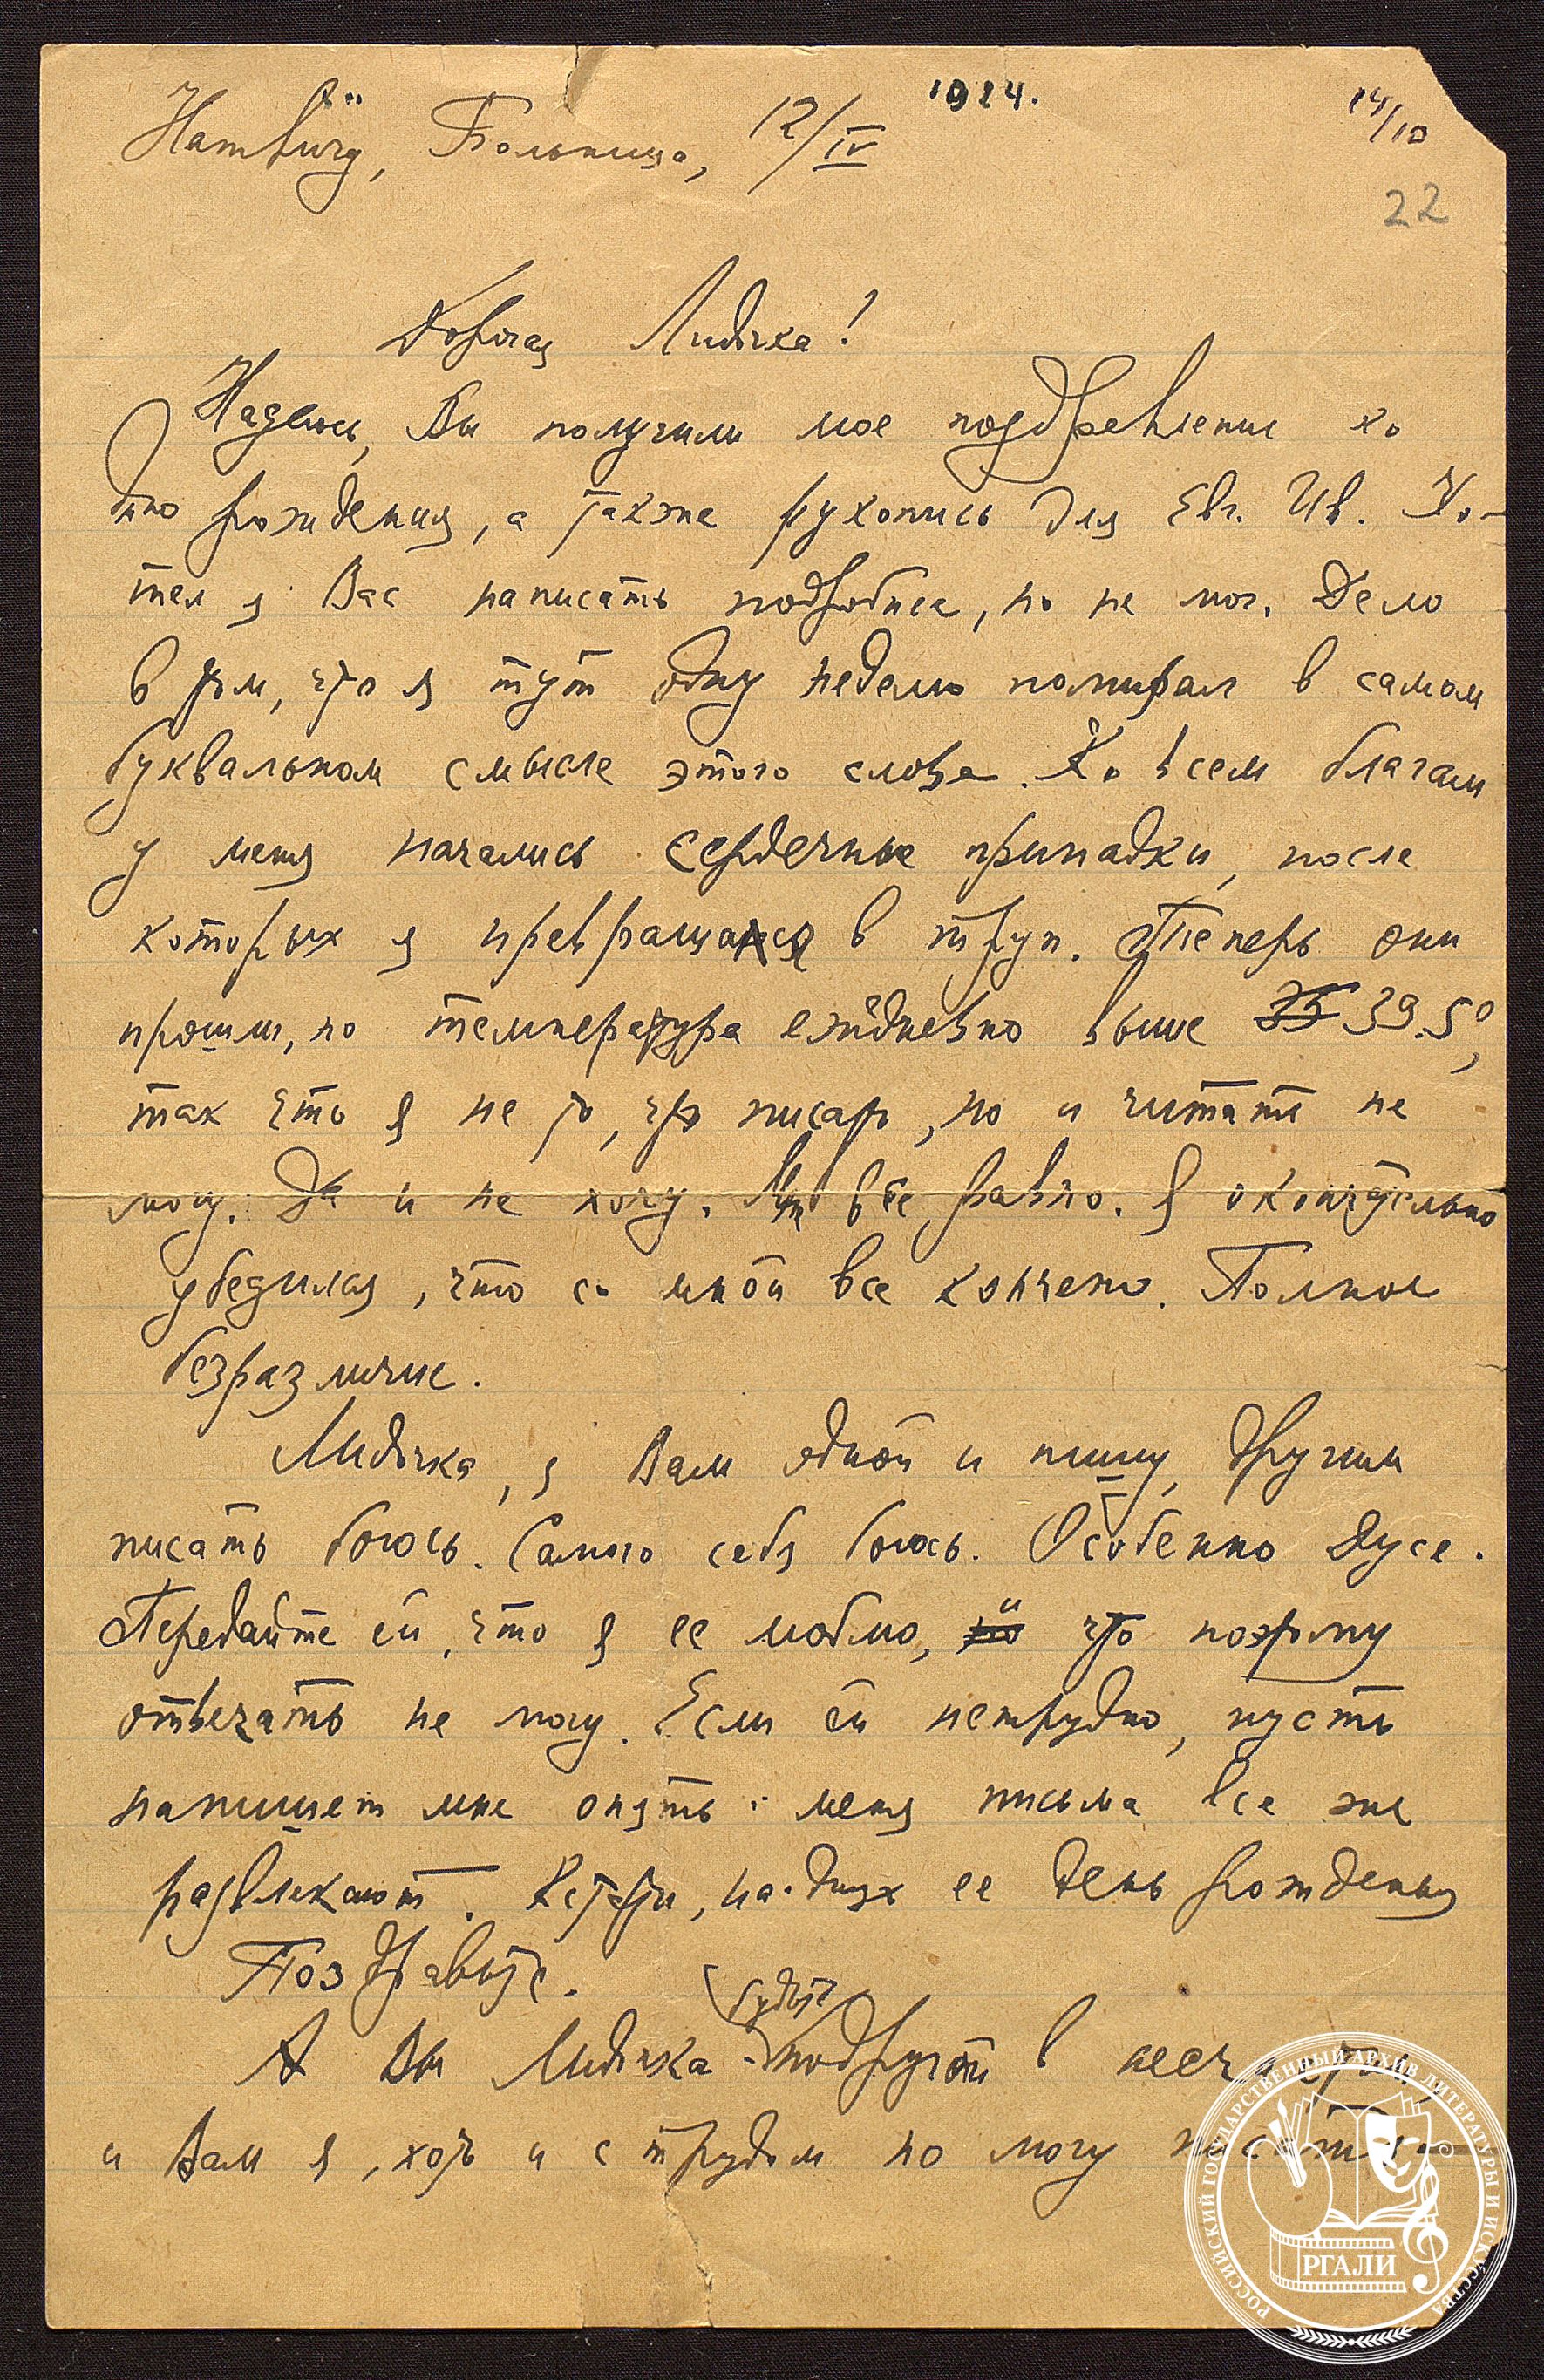 1924.
14/10
Hamburg, Больница, 12/IV
22
Дорогая Лидочка!
Надеюсь, Вы получили мое поздравление ко
дню рождения, а также рукопись для Евг. Ив. Хо-
тел я Вас написать подробнее, но не мог. Дело
в том, что я тут одну неделю помирал в самом
буквальном смысле этого слова. Ко всем благам
у меня начались сердечные припадки, после
которых я превращался в труп. Теперь они
прошли, но температура ежедневно выше 39.5°,
так что я не то, что писать, но и читать не
могу. Да и не хочу. Мне все равно. Я окончательно
убедился, что со мной все кончено. Полное
безразличие.
Лидочка, я Вам одной и пишу, другим
писать боюсь. Самого себя боюсь. Особенно Дусе.
Передайте ей, что я ее люблю, и что поэтому
отвечать не могу. Если ей нетрудно, пусть
напишет мне опять: меня письма все же
развлекают. Кстати, на-днях ее день рожденья
Поздравьте.
А Вы Лидочка - будьте подругой в несчастьи,
и Вам я, хоть и с трудом но могу писать —
РОССИЙСКИЙ ГОСУДАРСТВЕННЫЙ АРХИВ ЛИТЕРАТУРЫ И ИСКУССТВА
РГАЛИ